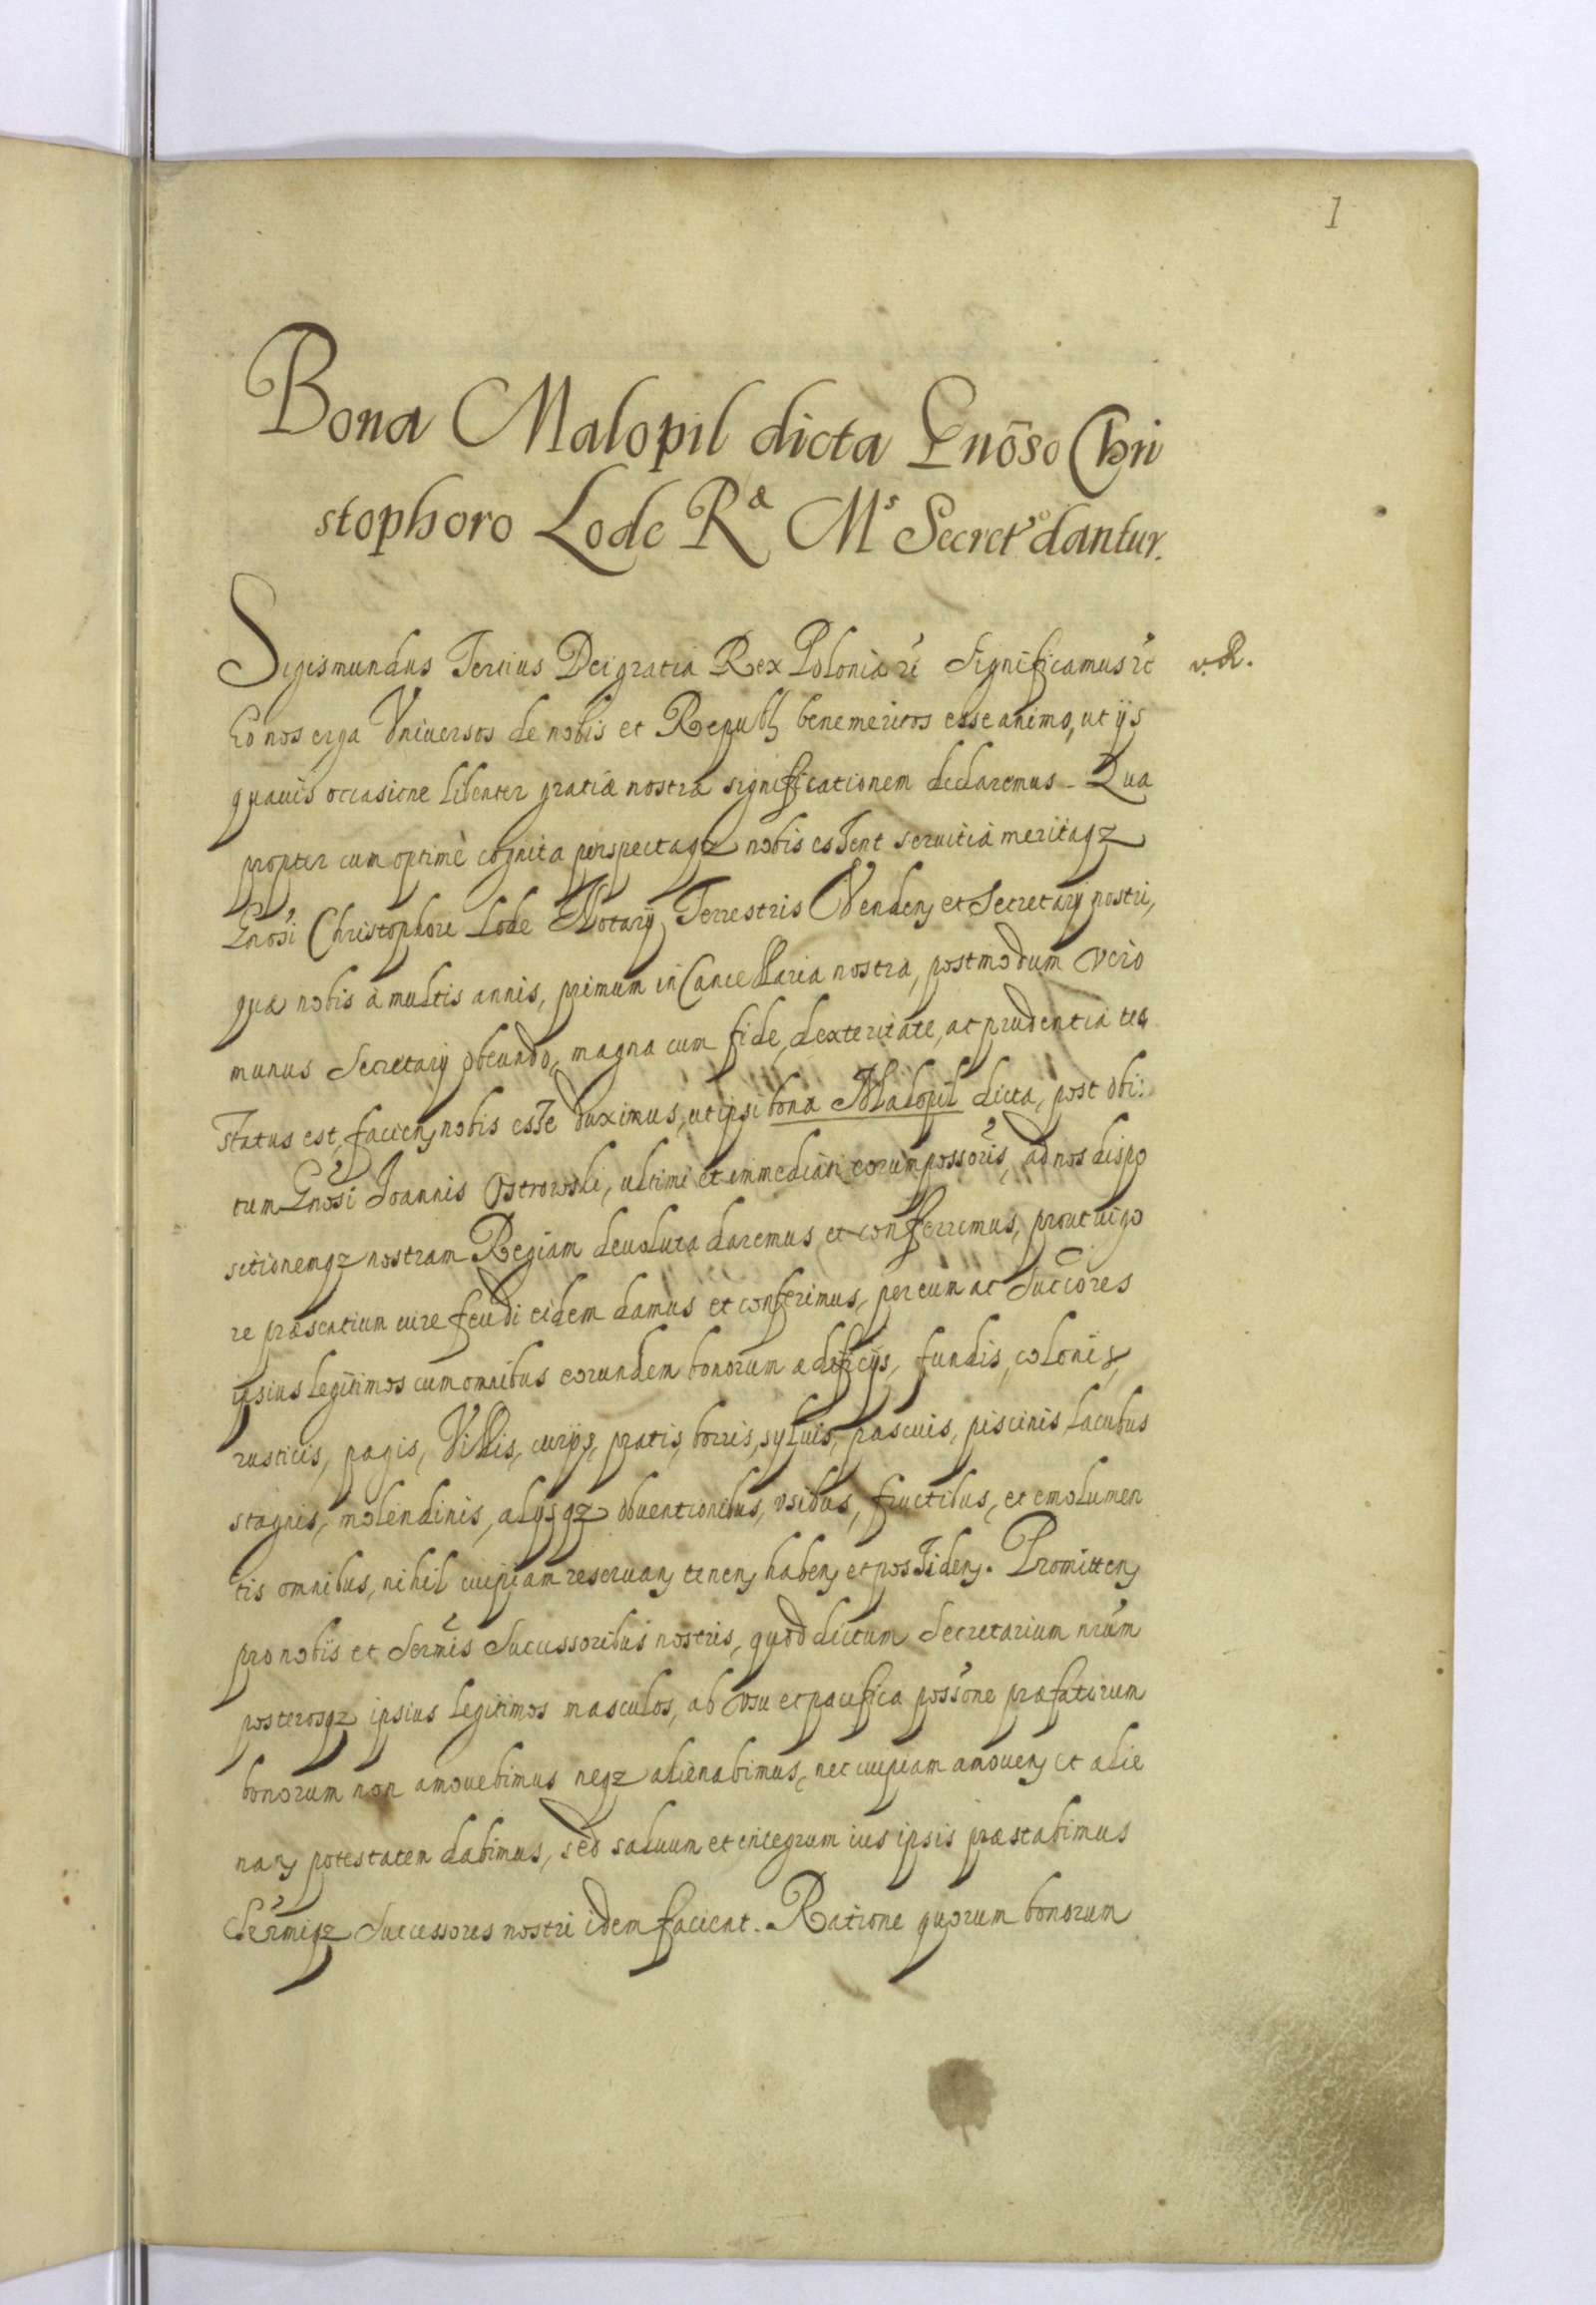 1
Bona Malopil dicta Gnōso Chri
stophoro Lode Rᵃ Mˢ Secretº dantur.
Sigismundus Tertius Dei gratia Rex Poloniæ etc Significamus etc
Eo nos erga Vniuersos de nobis et Repub benemeritos esse animo, ut ijs
quauis occasione libenter gratiæ nostræ significationem declaremus. Qua
propter cum optimè cognita perspectaqz nobis essent seruitia meritaqz
Gnosi Christophori Lode Notarij Terrestris Venden et Secretarij nostri,
quæ nobis à multis annis, primum in Cancellaria nostra, postmodum verò
munus Secretarij obeundo, magna cum fide, dexteritate, ac prudentia te
status est, facien nobis esse duximus, ut ipsi bona Malopil dicta, post obi:
tum Gnosi Joannis Ostrowski, ultimi et immediati eorum possoris, ad nos dispo
sitionemqz nostram Regiam deuoluta daremus et conferremus, prout uigo
re præsentium iure feudi eidem damus et conferimus, per eum ac Succores
ipsius legitimos cum omnibus eorundem bonorum ædificijs, fundis, colonis,
rusticis, pagis, Villis, curijs, pratis, borris, syluis, pascuis, piscinis, lacubus
stagnis, molendinis, alijsqz obuentionibus, vsibus, fructibus, et emolumen
tis omnibus, nihil cuipiam reseruan tenen haben et possiden. Promitten
pro nobis et Sermis Successoribus nostris, quod dictum Secretarium nrum
posterosqz ipsius legitimos masculos, ab vsu et pacifica possone præfatorum
bonorum non amouebimus neqz alienabimus, nec cuipiam amouen et alie
nan potestatem dabimus, sed saluum et integrum ius ipsis præstabimus
Sermiqz Successores nostri idem facient. Ratione quorum bonorum